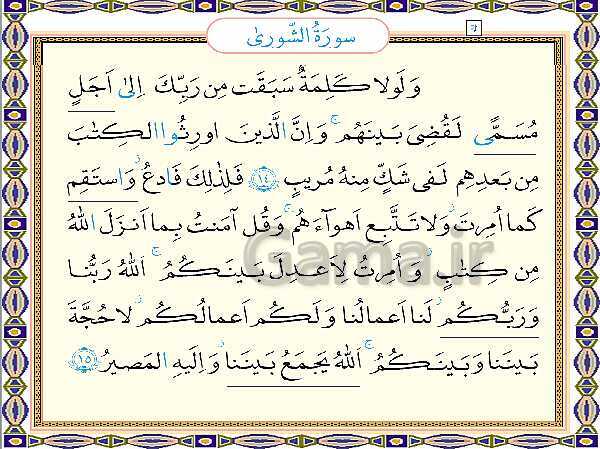 سورَةُ الشّورىٰ
وَ لَولا كَلِمَةٌ سَبَقَت مِن رَبِّكَ اِلىٰ اَجَلٍ
مُسَمًّى لَقُضِىَ بَينَهُم ۚ وَ اِنَّ الَّذينَ اورِثُوا الكِتٰبَ
مِن بَعدِهِم لَفى شَكٍّ مِنهُ مُريبٍ ١٤ فَلِذٰلِكَ فَادعُ ۖ وَاستَقِم
كَما اُمِرتَ ۖ وَلا تَتَّبِع اَهوآءَهُم ۖ وَ قُل آمَنتُ بِما اَنزَلَ اللّٰهُ
مِن كِتٰبٍ ۖ وَ اُمِرتُ لِاَعدِلَ بَينَكُمُ ۖ اَللّٰهُ رَبُّنا
وَ رَبُّكُم ۖ لَنا اَعمالُنا وَ لَكُم اَعمالُكُم ۖ لا حُجَّةَ
بَينَنا وَ بَينَكُمُ ۖ اَللّٰهُ يَجمَعُ بَينَنا ۖ وَ اِلَيهِ المَصيرُ ١٥
Gama.ir